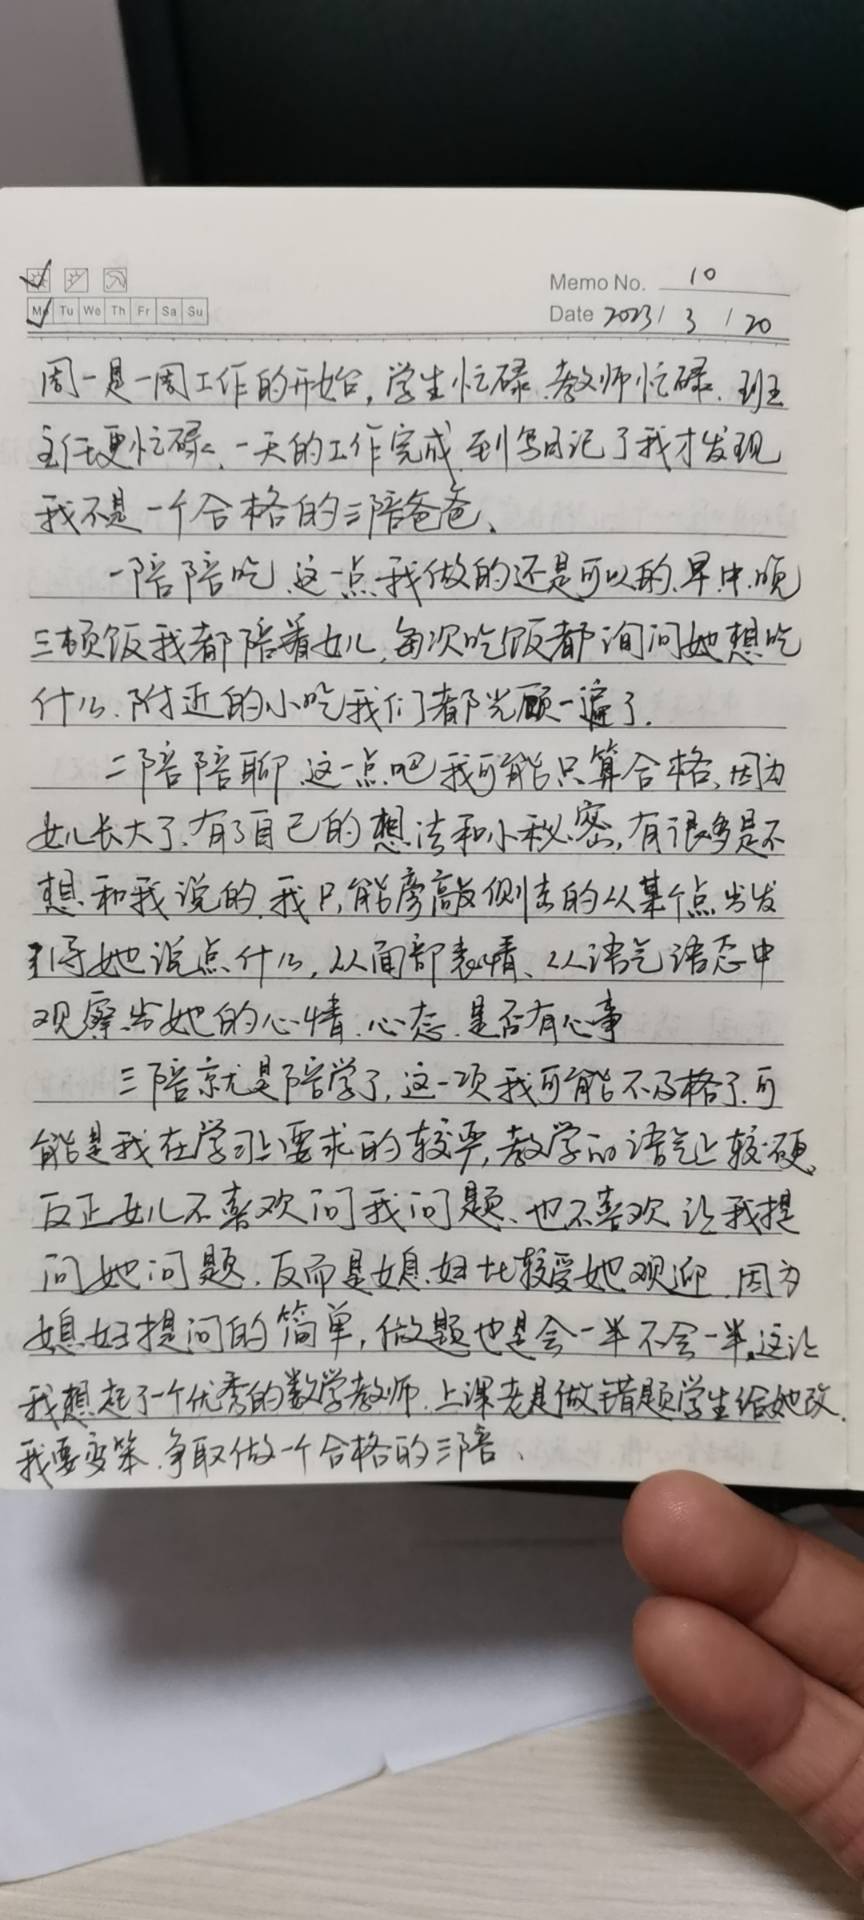 Memo No. 10
Mo Tu We Th Fr Sa Su
Date 2023 / 3 / 20
周一是一周工作的开始,学生忙碌、教师忙碌、班
主任更忙碌、一天的工作完成、到写日记了我才发现
我不是一个合格的三陪爸爸、
一陪陪吃、这一点我做的还是可以的、早、中、晚
三顿饭我都陪着女儿,每次吃饭都询问她想吃
什么、附近的小吃我们都光顾一遍了.
二陪陪聊、这一点吧我可能只算合格、因为
女儿长大了、有了自己的想法和小秘密,有很多是不
想和我说的、我只能旁敲侧击的从某个点出发
引导她说点什么,从面部表情、从语气语态中
观察出她的心情、心态、是否有心事
三陪就是陪学了,这一项我可能不及格了、可
能是我在学习上要求的较严,教学的语气上较硬、
反正女儿不喜欢问我问题、也不喜欢让我提
问她问题、反而是媳妇比较受她欢迎、因为
媳妇提问的简单,做题也是会一半不会一半。这让
我想起了一个优秀的数学教师、上课老是做错题学生给她改、
我要变笨、争取做一个合格的三陪、